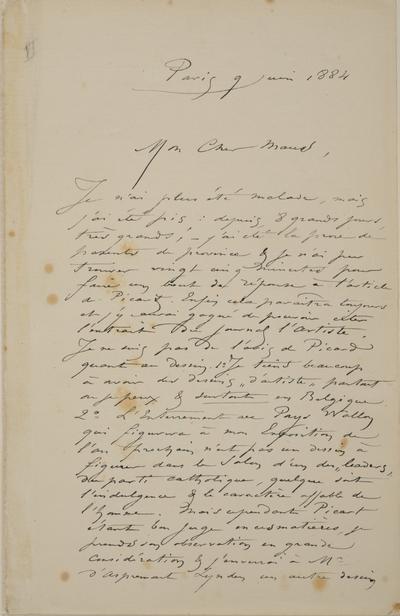 Paris 9 juin 1884
Mon Cher Maus,
Je n'ai plus été malade, mais
j'ai été pis : depuis 8 grands jours,
très grands ! – j'ai été la proie de
parents de province & je n'ai pu
trouver vingt cinq minutes pour
faire un bout de réponse à l'article
de Picard. Enfin cela paraîtra toujours
et j'y aurai gagné de pouvoir citer
l'extrait du journal l'Artiste.
Je ne suis pas de l'avis de Picard
quant au Dessin. 1º Je tiens beaucoup
à avoir des dessins „d'artiste" partout
où je peux & surtout en Belgique
2º L'Enterrement au Pays Wallon
qui figurera à mon Exposition de
l'an prochain n'est pas un dessin à
figurer dans le Salon d'un des leaders,
du parti catholique, quelque soit
l'indulgence & le caractère affable de
l'homme. Mais cependant Picard
étant bon juge en ces matières, je
prends son observation en grande
considération & j'enverrai à Mr
d'Aspremont Lynden un autre dessin